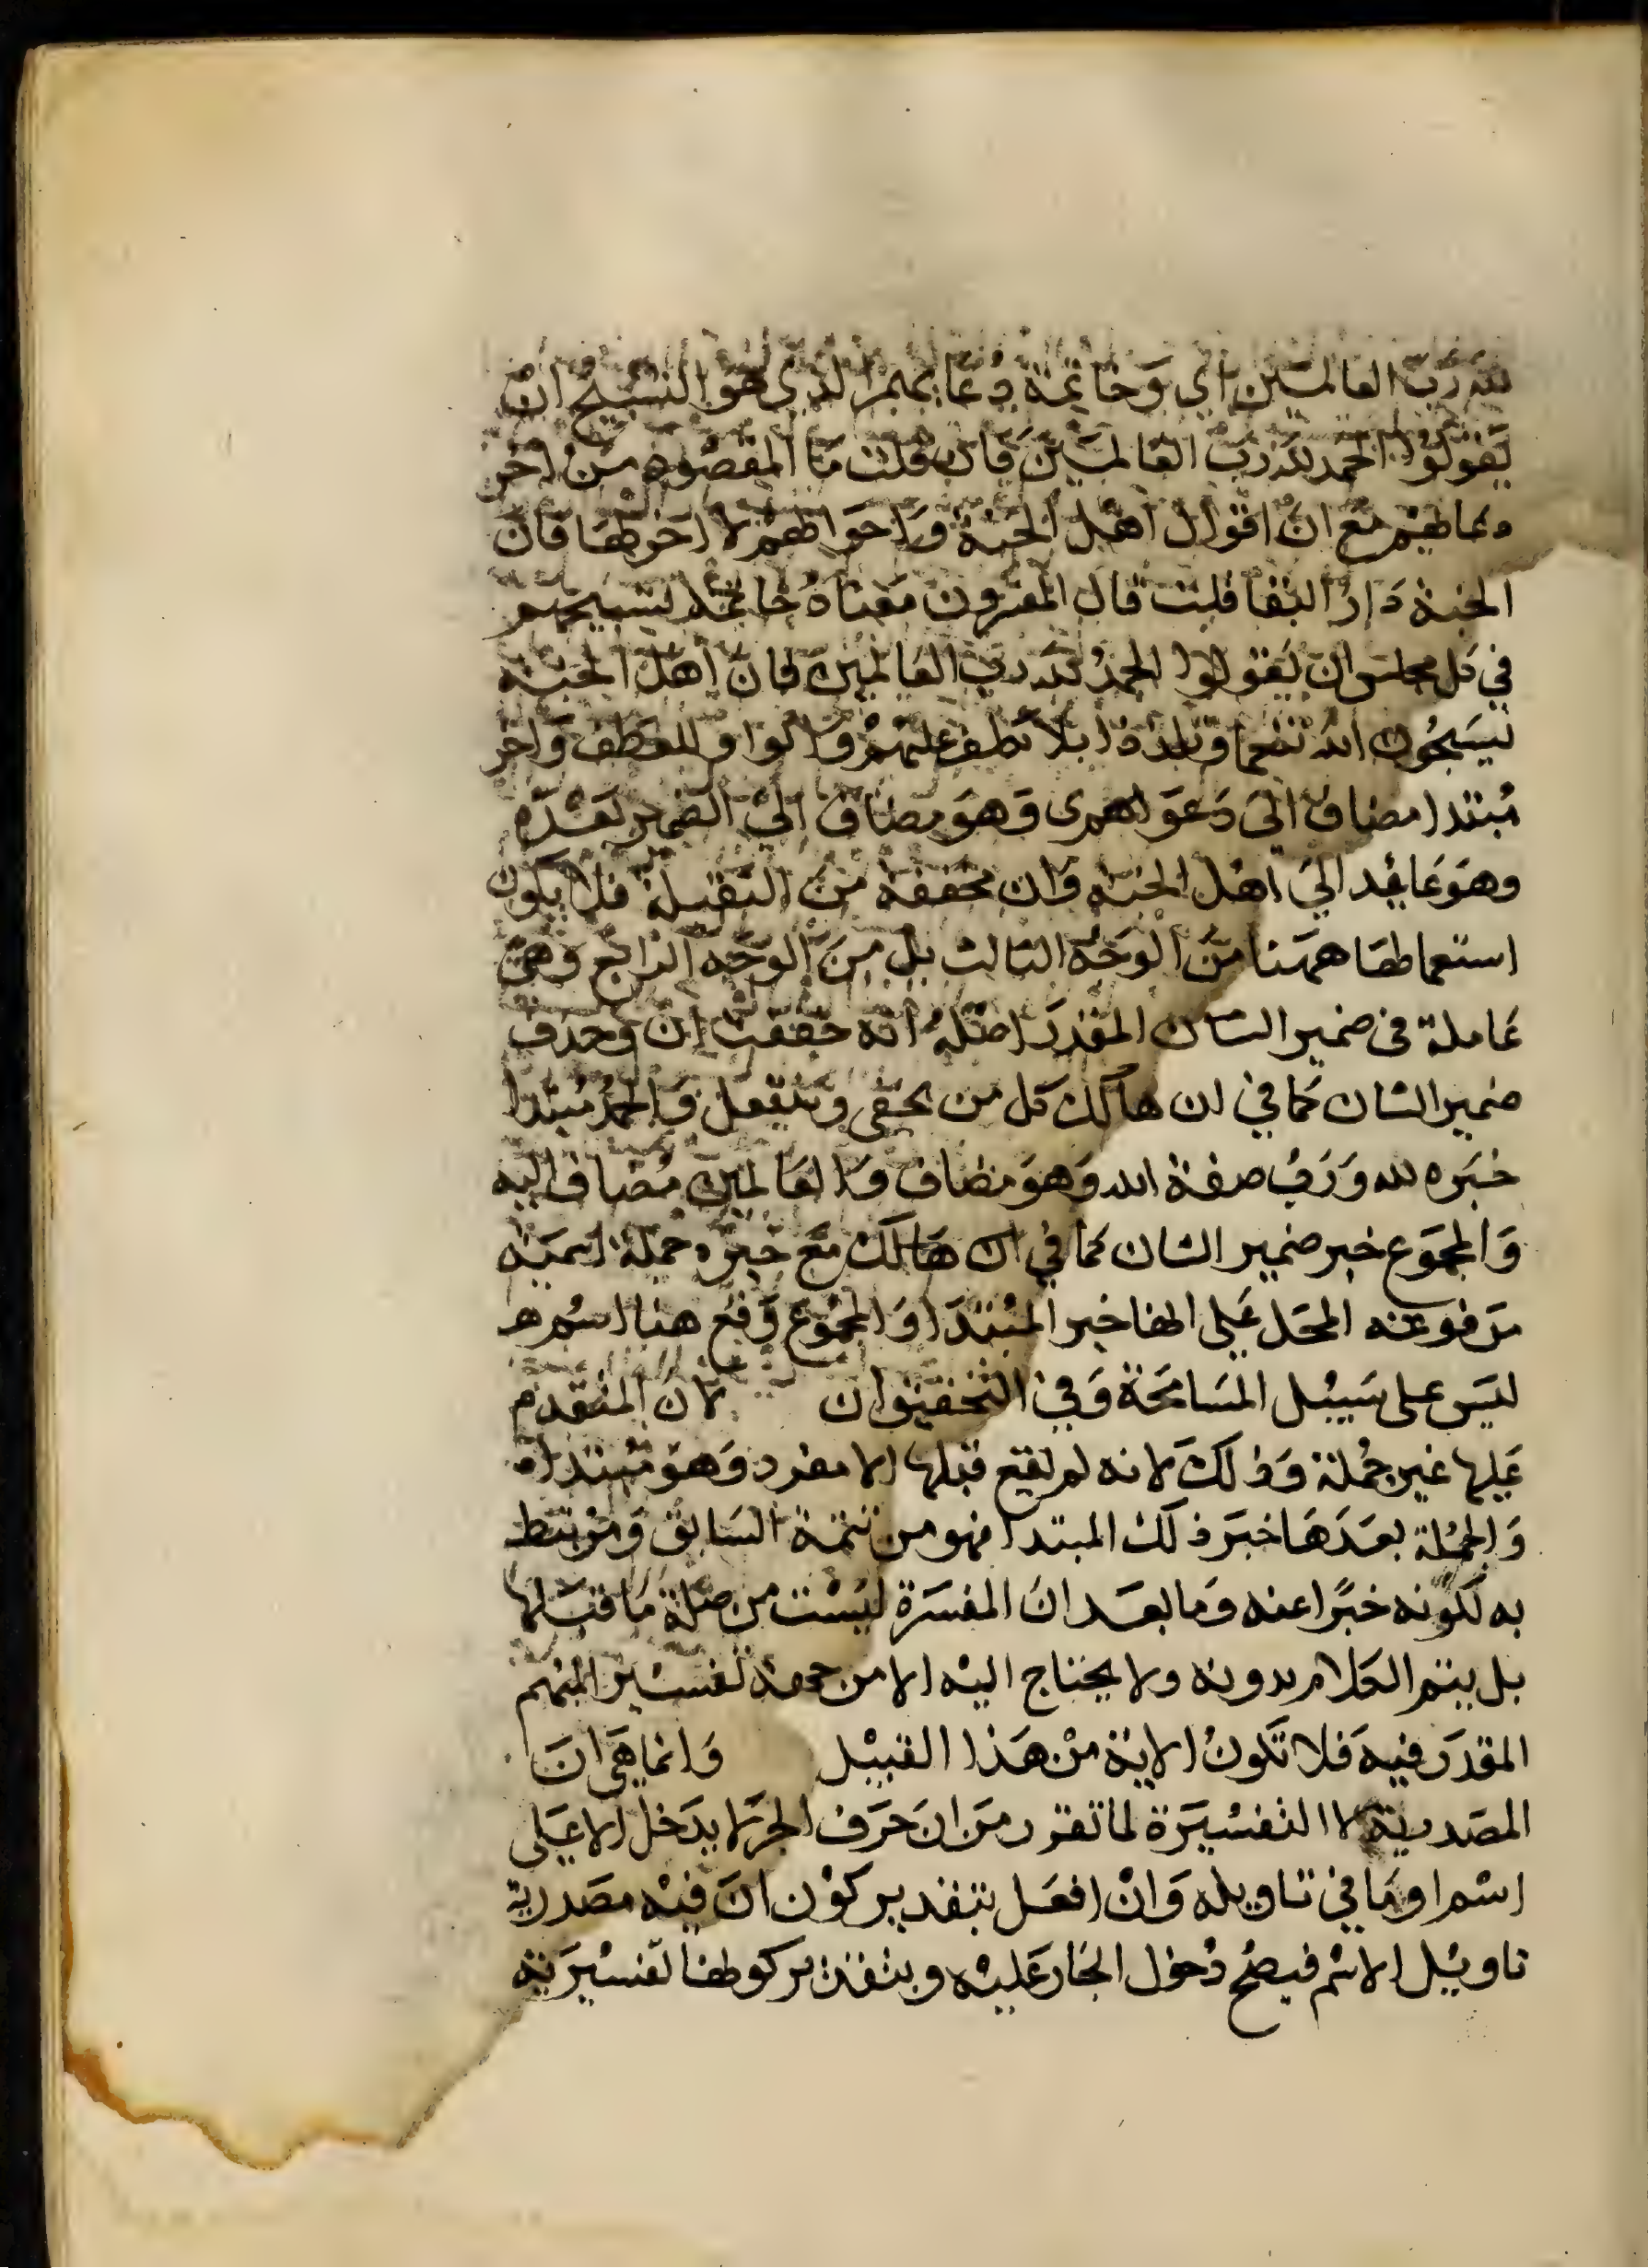 لله رب العالمين اي وخاتمة دعايهم الذي هو التسبيح ان
يقولوا الحمد لله رب العالمين فان قلت ما المقصود من اخر
دعائهم مع ان اقوال اهل الجنة واحوالهم لا اخر لها فان
الجنة دار البقا قلت قال المفسرون معناه خاتمة تسبيحهم
في كل مجلس ان يقولوا الحمد لله رب العالمين فان اهل الجنة
يسبحون الله تنعما وتلذذا بلا تكلف عليهم والواو للعطف واخر
مبتدا مضاف الى دعواهم وهو مضاف الى الضمير
وهو عائد الي اهل الجنة وان مخففة من الثقيلة فلا يكون
استعمالها ههنا من الوجه الثالث بل من الوجه الرابع وهي
عاملة في ضمير الشان المقدر اصله انه خففت ان وحذف
ضمير الشان كما في ان هالك كل من يحفى وينتعل والحمد مبتدا
خبره لله ورب صفة الله وهو مضاف والعالمين مضاف اليه
والمجموع خبر ضمير الشان كما في ان هالك مع خبره جملة اسمية
مرفوعة المحل على انها خبر المبتدا والمجموع وقع هنا اسم
ليس على سبيل المسامحة وفي التحقيق ان لان المتقدم
عليها غير جملة وذلك لانه لم يقع قبلها الا مفرد وهو مبتدا
والجملة بعدها خبر ذلك المبتدا فهو من تتمة السابق ومرتبط
به لكونه خبرا عنه وما بعد ان المفسرة ليست من صلة ما قبلها
بل يتم الكلام بدونه ولا يحتاج اليه الا من جهة تفسير المبهم
المقدر فيه فلا تكون الاية من هذا القبيل وانما هي ان
المصدرية لا التفسيرة لما تقرر من ان حرف الجر لا يدخل الا على
اسم او ما في تاويله وان افعل بتقدير كون ان فيه مصدرية
تاويل الاسم فيصح دخول الجار عليه وبتقدير كونها تفسيرية